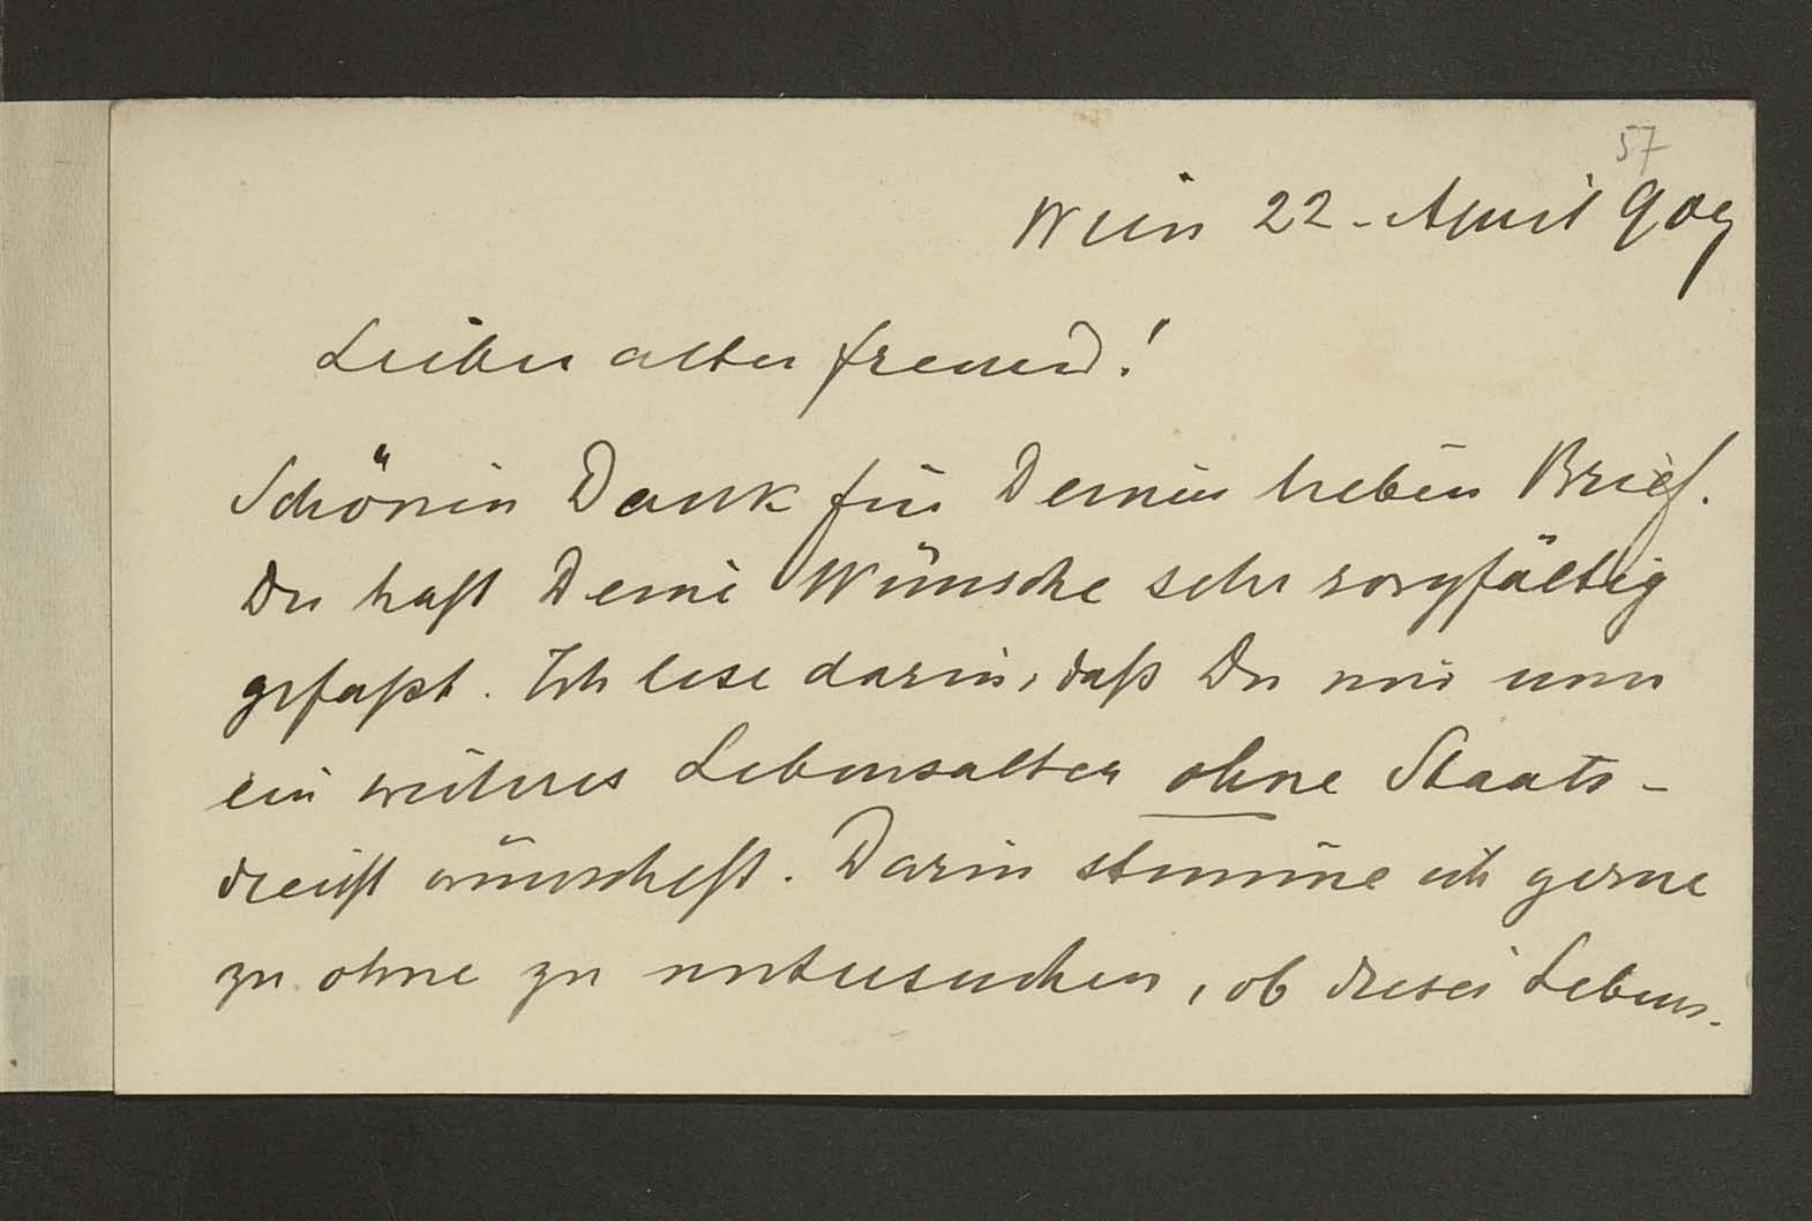 57
Wien 22. April 909
Lieber alter Freund!
Schönen Dank für Deinen lieben Brief.
Du hast Deine Wünsche sehr sorgfältig
gefaßt. Ich lese darin, daß Du mir nun
ein weiteres Lebensalter ohne Staats-
dienst wünschest. Darin stimme ich gerne
zu ohne zu untersuchen, ob dieses Lebens-